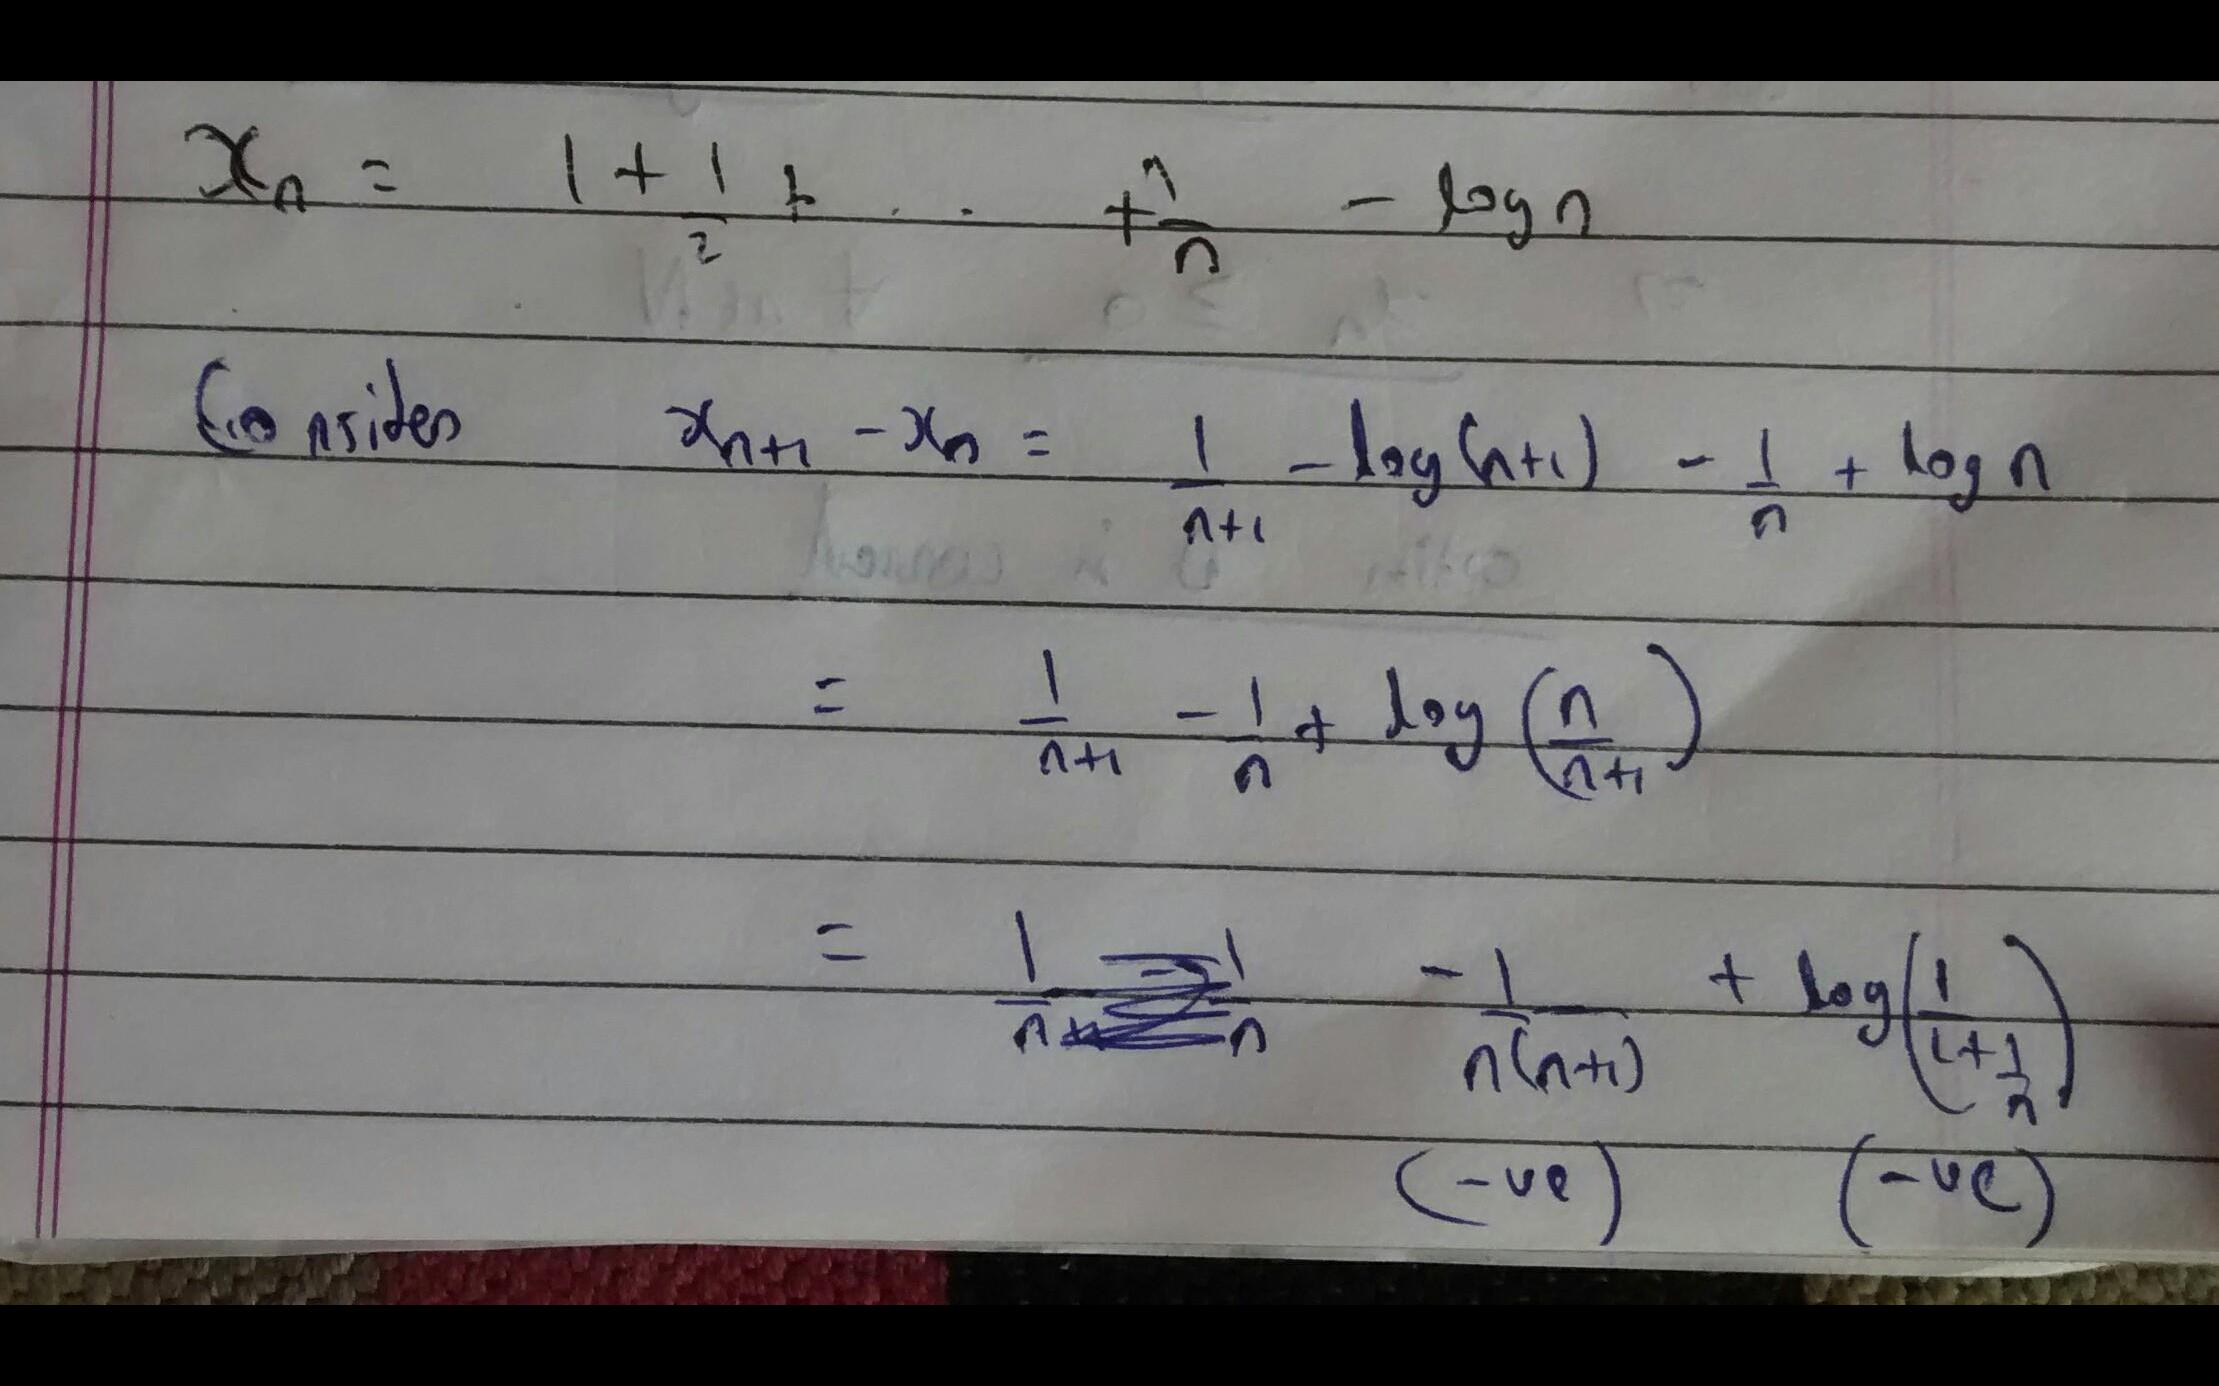 xₙ = 1 + 1/2 + . . + 1/n - log n
Consider xₙ₊₁ - xₙ = 1/(n+1) - log(n+1) - 1/n + log n
= 1/(n+1) - 1/n + log (n/(n+1))
= -1/(n(n+1)) + log (1/(1+1/n))
(-ve) (-ve)